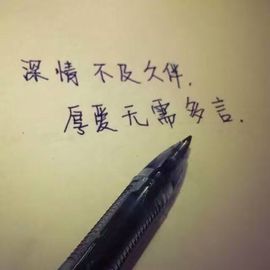 深情不及久伴.
厚爱无需多言.